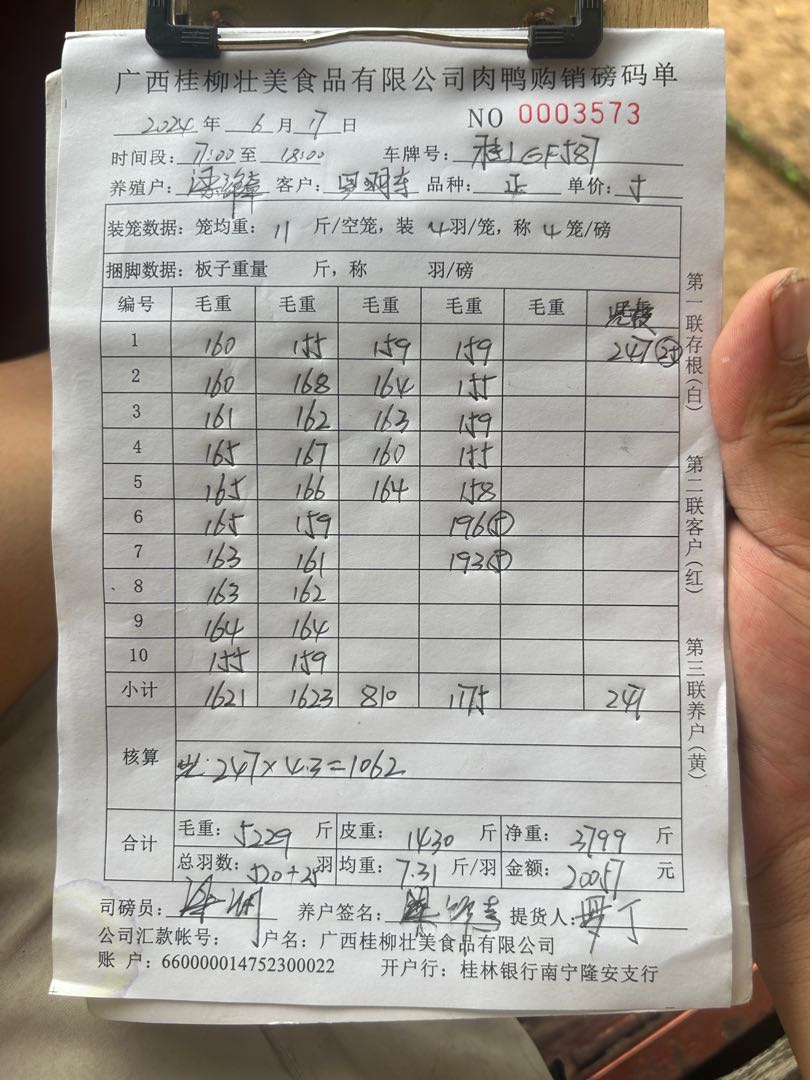 广西桂柳壮美食品有限公司肉鸭购销磅码单
2024 年 6 月 17 日 NO 0003573
时间段: 17:00 至 18:00 车牌号: 桂LGF587
养殖户: 客户: 品种: 正 单价:
装笼数据: 笼均重: 11 斤/空笼, 装 4 羽/笼, 称 4 笼/磅
捆脚数据: 板子重量 斤, 称 羽/磅
编号 毛重 毛重 毛重 毛重 毛重
1 160 155 159 159 247 25
2 160 168 164 155
3 161 162 163 159
4 165 167 160 155
5 165 166 164 158
6 165 159 196 5
7 163 161 193 5
8 163 162
9 164 164
10 155 159
小计 1621 1623 810 1175 247
核算 247×4.3=1062
合计 毛重: 5229 斤 皮重: 1430 斤 净重: 3799 斤
总羽数: 520+25 羽 均重: 7.31 斤/羽 金额: 20057 元
司磅员: 养户签名: 提货人: 罗丁
公司汇款帐号: 户名: 广西桂柳壮美食品有限公司
账 户: 660000014752300022 开户行: 桂林银行南宁隆安支行
第一联存根(白) 第二联客户(红) 第三联养户(黄)